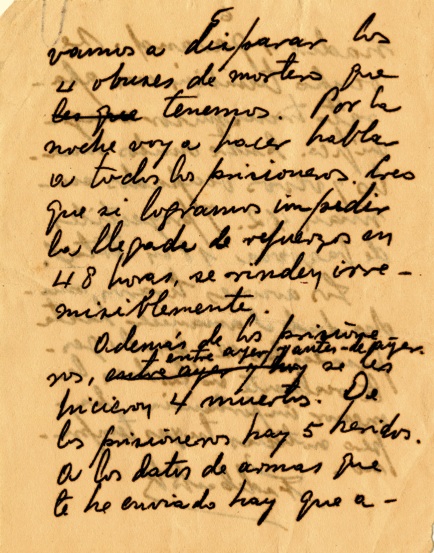 vamos a disparar los
4 obuses de mortero que
les que tenemos. Por la
noche voy a hacer hablar
a todos los prisioneros. Creo
que si logramos impedir
la llegada de refuerzos en
48 horas, se rinden irre-
misiblemente.
Además de los prisione
entre ayer y antes-de-ayer.
ros, entre ayer y hoy se les
hicieron 4 muertos. De
los prisioneros hay 5 heridos.
A los datos de armas que
te he enviado hay que a-